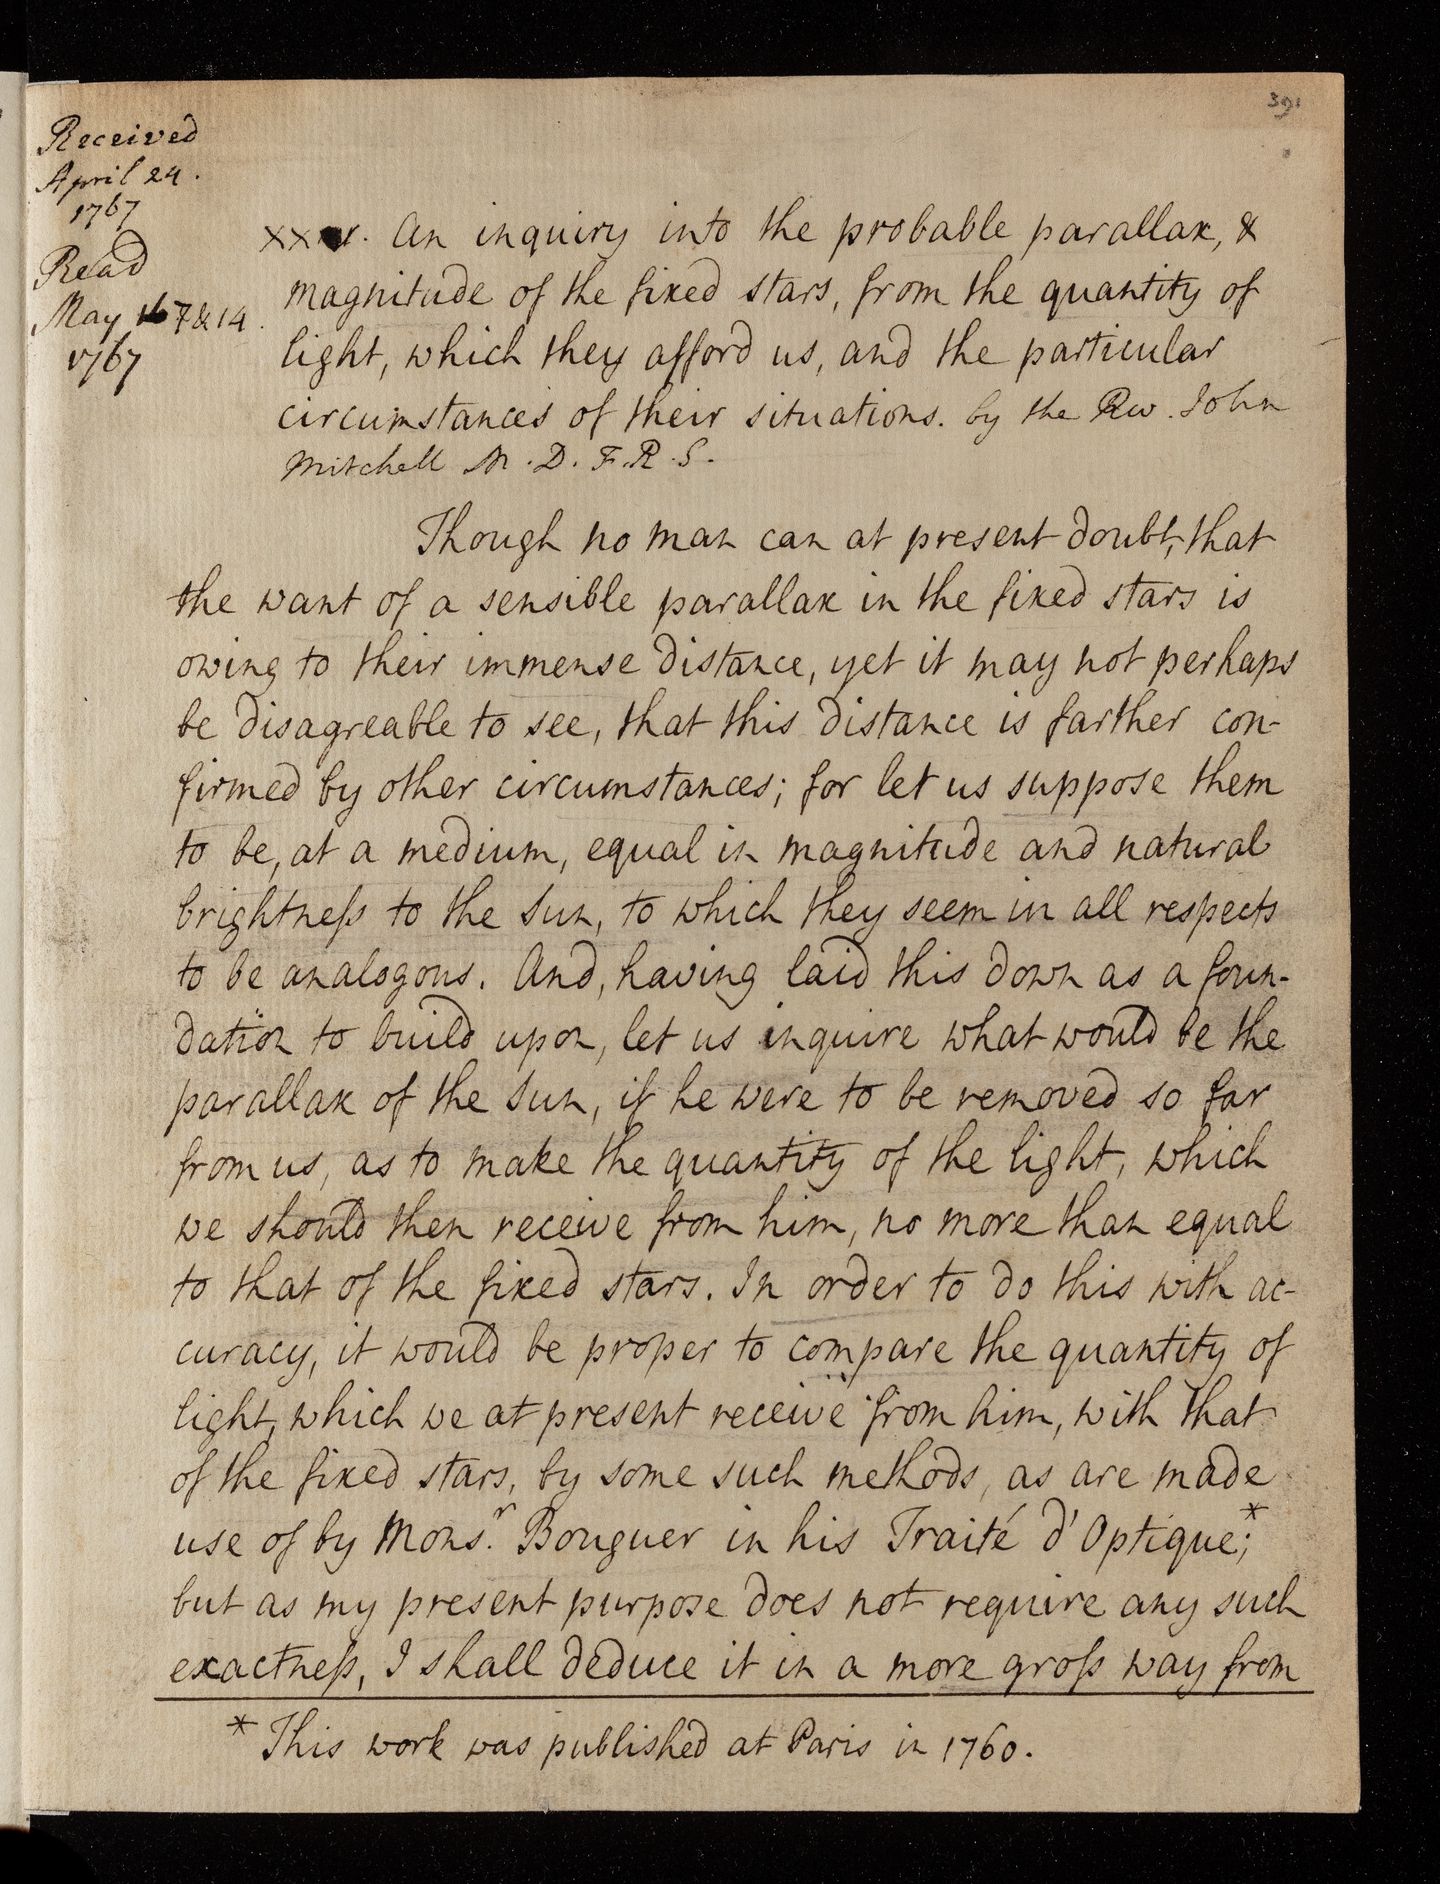 391
Received
April 24.
1767
Read
May 7 & 14.
1767
An inquiry into the probable parallax, &
magnitude of the fixed stars, from the quantity of
light, which they afford us, and the particular
circumstances of their situations. by the Rev. John
Mitchell M. D. F. R. S.
Though no man can at present doubt, that
the want of a sensible parallax in the fixed stars is
owing to their immense distance, yet it may not perhaps
be disagreable to see, that this distance is farther con-
firmed by other circumstances; for let us suppose them
to be, at a medium, equal in magnitude and natural
brightneſs to the Sun, to which they seem in all respects
to be analogous. And, having laid this down as a foun-
dation to build upon, let us inquire what would be the
parallax of the Sun, if he were to be removed so far
from us, as to make the quantity of the light, which
we should then receive from him, no more than equal
to that of the fixed stars. In order to do this with ac-
curacy, it would be proper to compare the quantity of
light, which we at present receive from him, with that
of the fixed stars, by some such methods, as are made
use of by Mons.r Bouguer in his Traité d'Optique;*
but as my present purpose does not require any such
exactneſs, I shall deduce it in a more groſs way from
* This work was published at Paris in 1760.